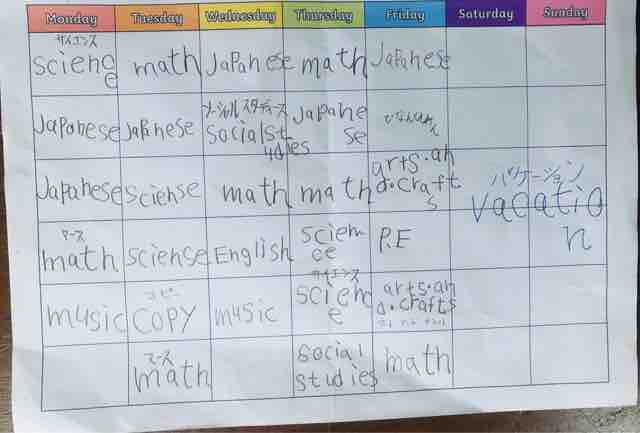 Monday Tuesday Wednesday Thursday Friday Saturday Sunday
サイエンス
science math Japanese math Japanese
ソーシャルスタディーズ
Japanese Japanese social studies Japanese
Japanese sciense math math arts・and・crafts
バケーション
vacation
マース
math sciense English science P.E
コピー サイエンス
music COPY music science arts・and・crafts
マース
math social studies math